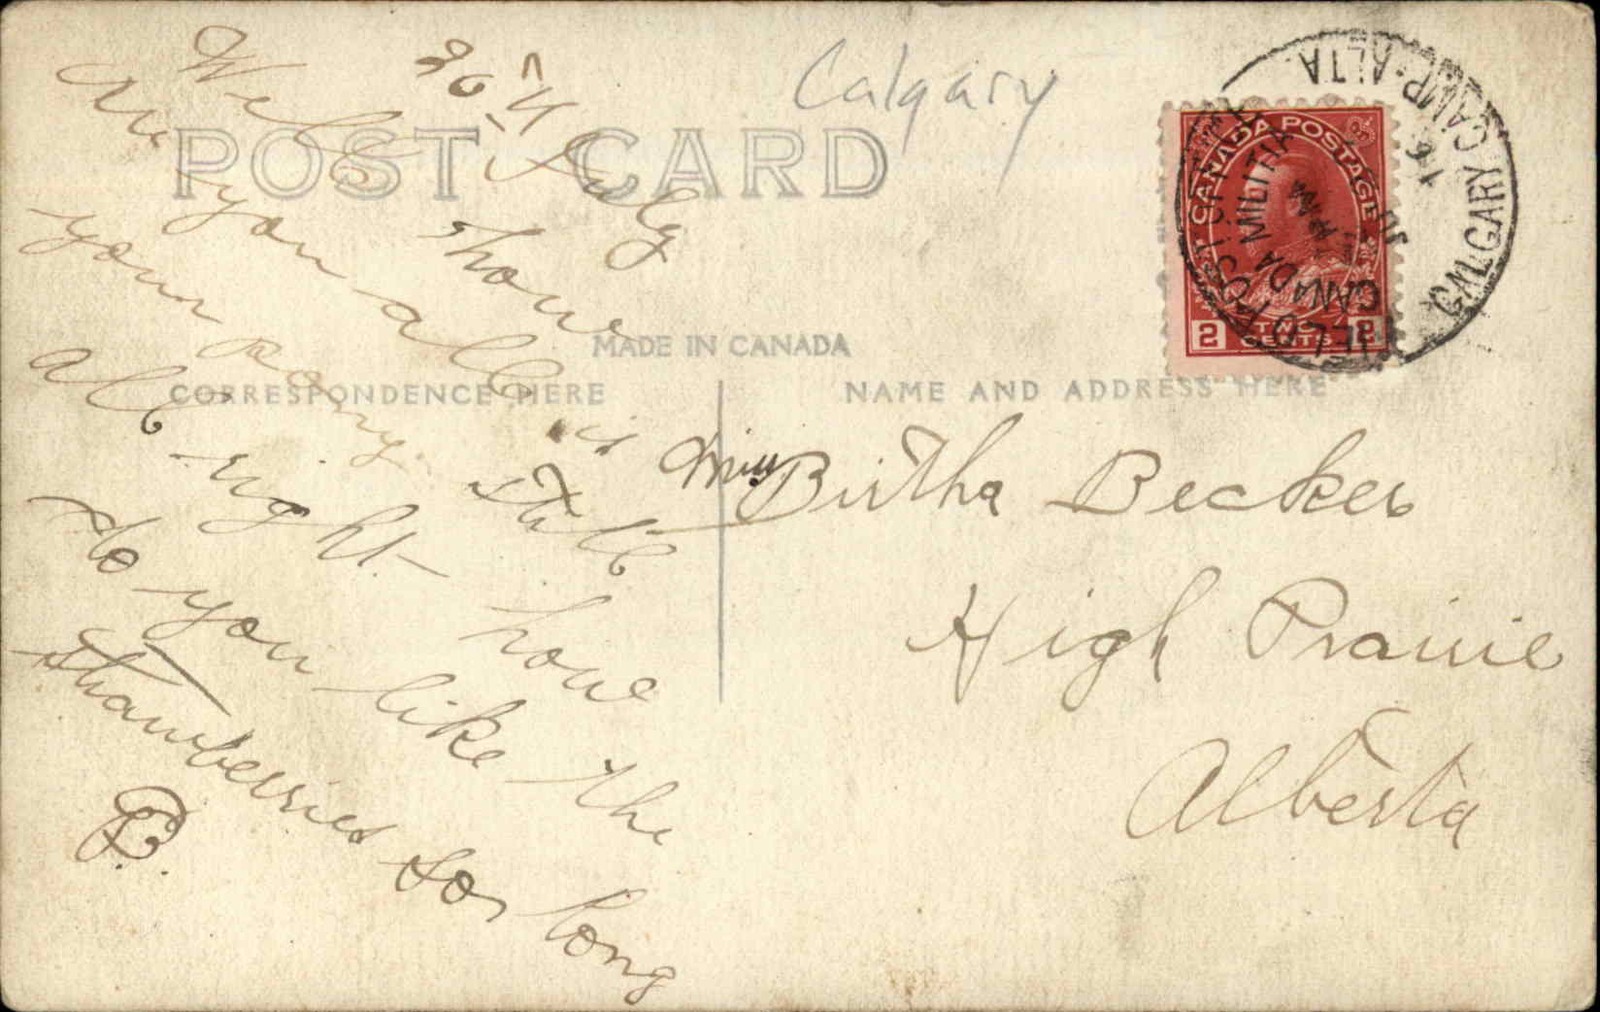 Calgary
20th July
POST CARD
Well how
are you all is
your pony still
all right how
do you like the
strawberries so long
B.
MADE IN CANADA
CORRESPONDENCE HERE
NAME AND ADDRESS HERE
Miss Birtha Becker
High Prairie
Alberta
CANADA POSTAGE
2 TWO CENTS 2
FIELD POST OFFICE
CALGARY CAMP. ALTA.
CANADA MILITIA
PM
16